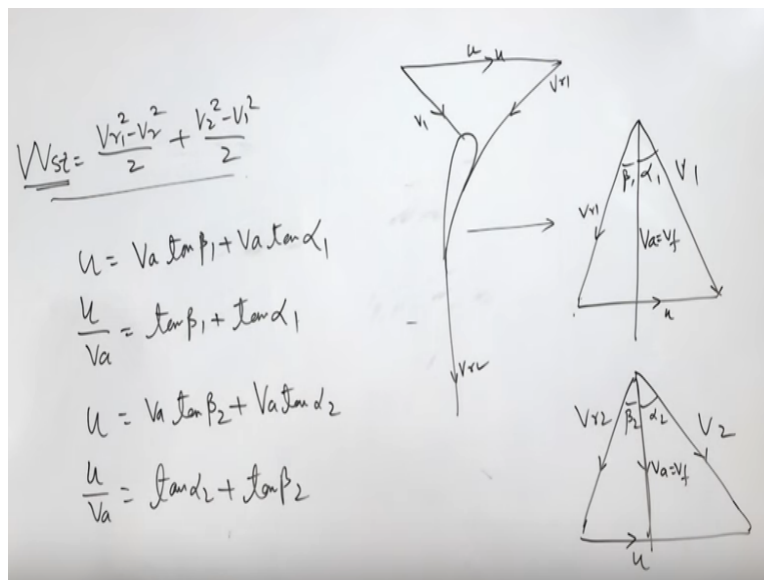 Wst = (Vr1² - Vr²)/2 + (V2² - V1²)/2
u = Va tanβ1 + Va tanα1
u/Va = tanβ1 + tanα1
u = Va tanβ2 + Va tanα2
u/Va = tanα2 + tanβ2
u u
V1 Vr1
Vr2
β1 α1
Vr1 V1
Va=Vf
u
β2 α2
Vr2 V2
Va=Vf
u